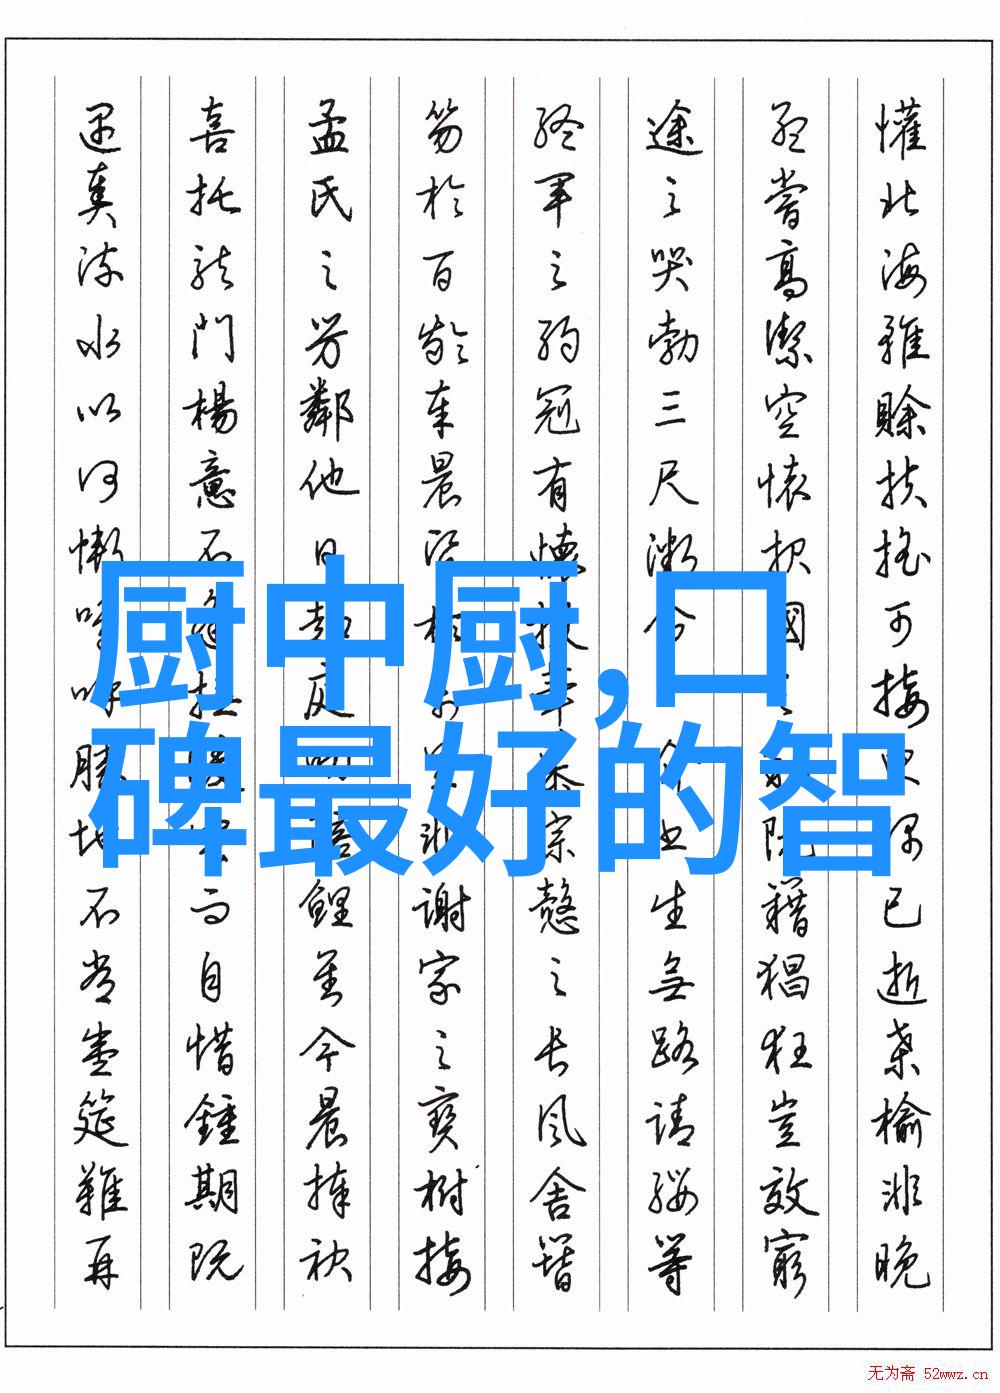 厨中厨,口
碑最好的智
懽北海雖賒扶搖可接已逝桑榆非晚
孟嘗高潔空懷报國阮籍猖狂豈效窮
途之哭勃三尺微命介書生無路請纓等
終軍之弱冠有懷投筆慕宗愨之長風舍簪
笏於百齡奉晨昏於里非謝家之寶樹接
孟氏之芳鄰他日趨庭叨陪鯉對今晨捧袂
喜托龍門楊意不逢而自惜鍾期既
遇奏流水以何慚嗚呼勝地不常盛筵難再
无为斋 52wwz.cn